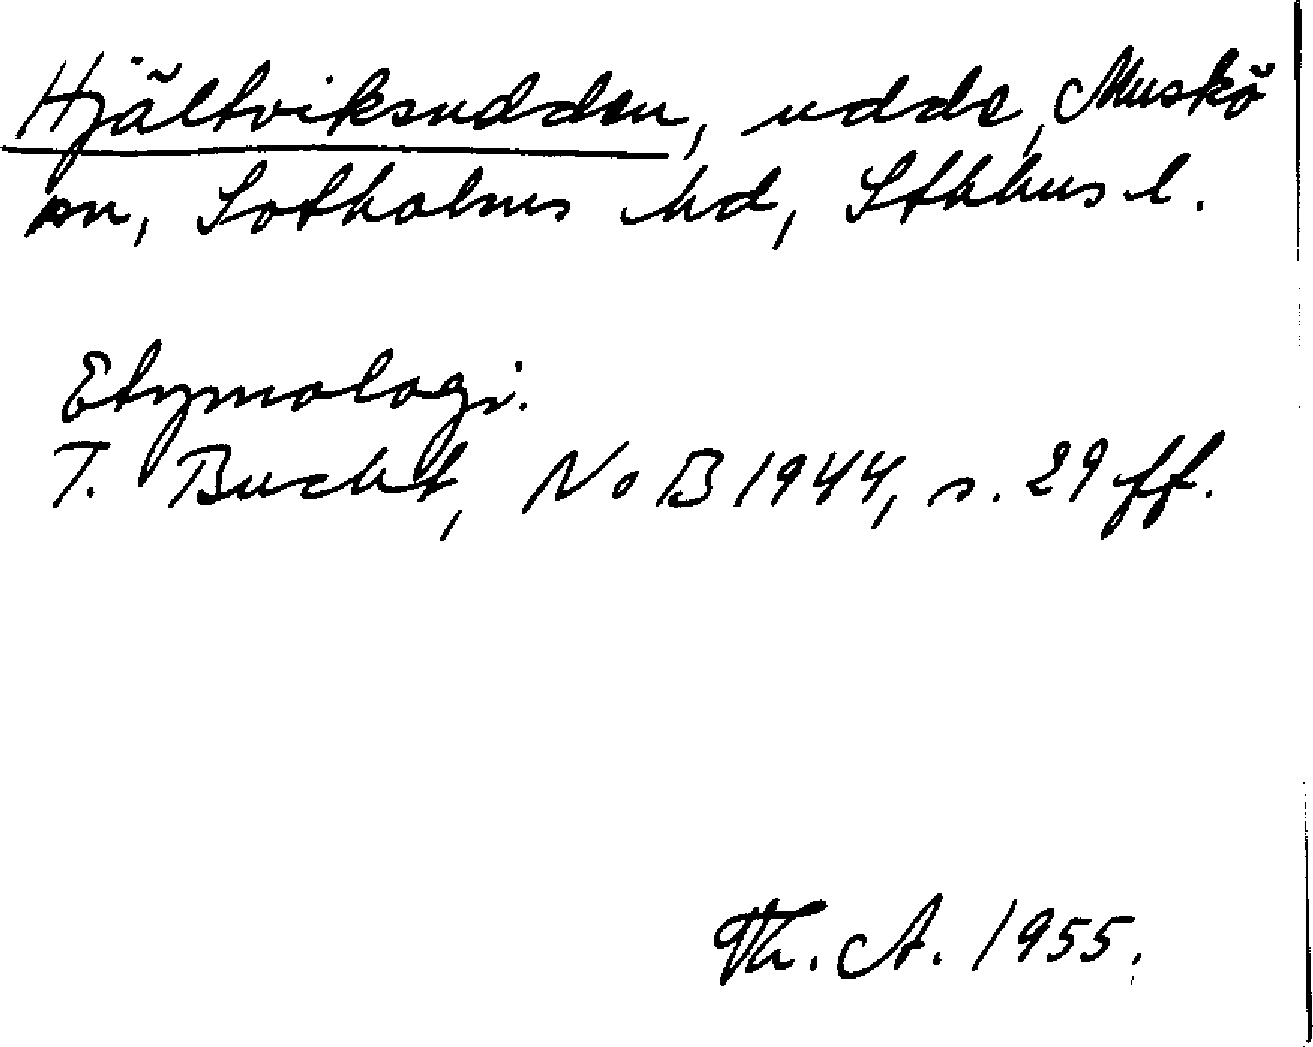 Hjältviksudden, udde, Muskö
sn, Sotholms hd, Sthlms l.
Etymologi.
T. Bucht, NoB 1944, s. 29 ff.
Th. A. 1955.